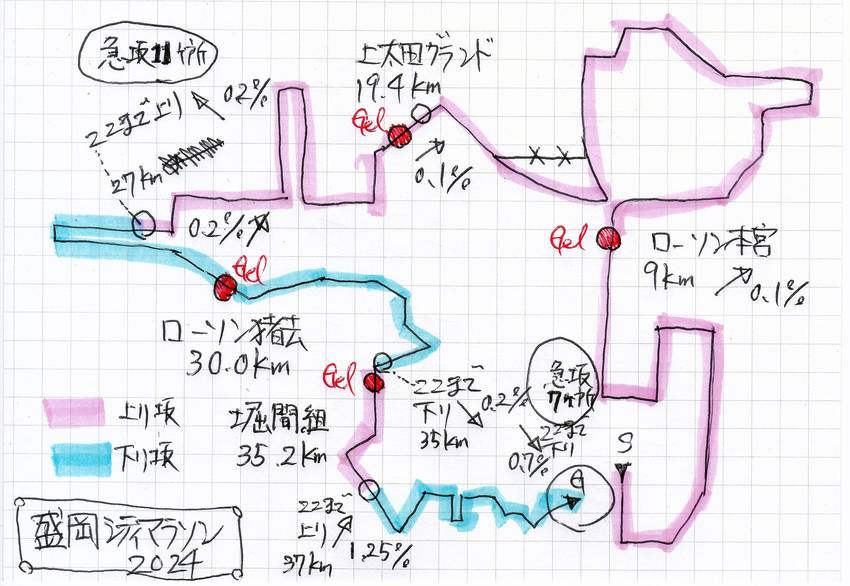 急坂11ヶ所
上太田グランド
19.4km
Gel
0.1%
ここまで上り
0.2%
27km
0.2%
Gel
ローソン本宮
9km
0.1%
Gel
ローソン猪去
30.0km
Gel
ここまで
下り
35km
0.2%
急坂
7ヶ所
ここまで
下り
0.7%
S
G
上り坂
下り坂
堀間組
35.2km
ここまで
上り
37km
1.25%
盛岡シティマラソン
2024